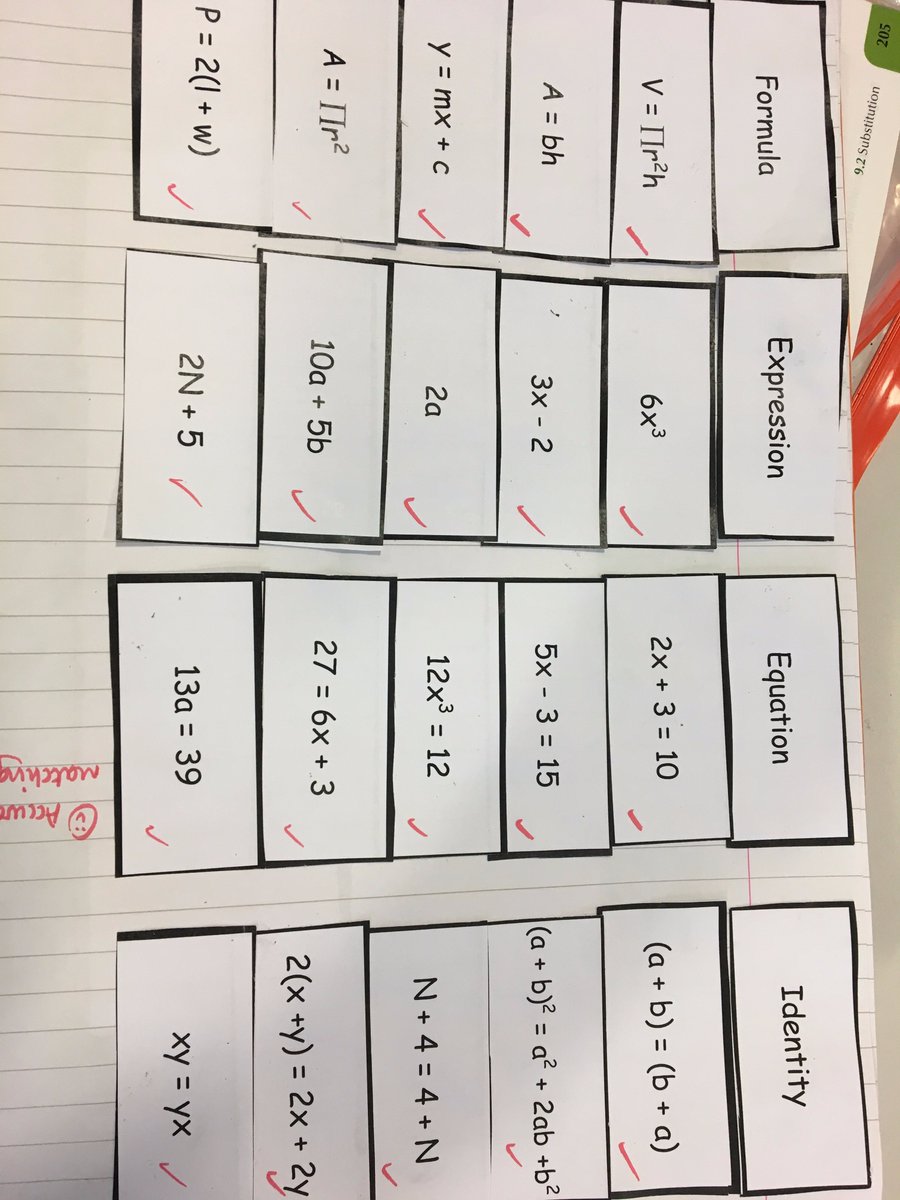 205
9.2 Substitution
Formula
V = ∏r²h
A = bh
y = mx + c
A = ∏r²
P = 2(l + w)
Expression
6x³
3x - 2
2a
10a + 5b
2N + 5
Equation
2x + 3 = 10
5x - 3 = 15
12x³ = 12
27 = 6x + 3
13a = 39
Identity
(a + b) = (b + a)
(a + b)² = a² + 2ab +b²
N + 4 = 4 + N
2(x +y) = 2x + 2y
xy = yx
matching